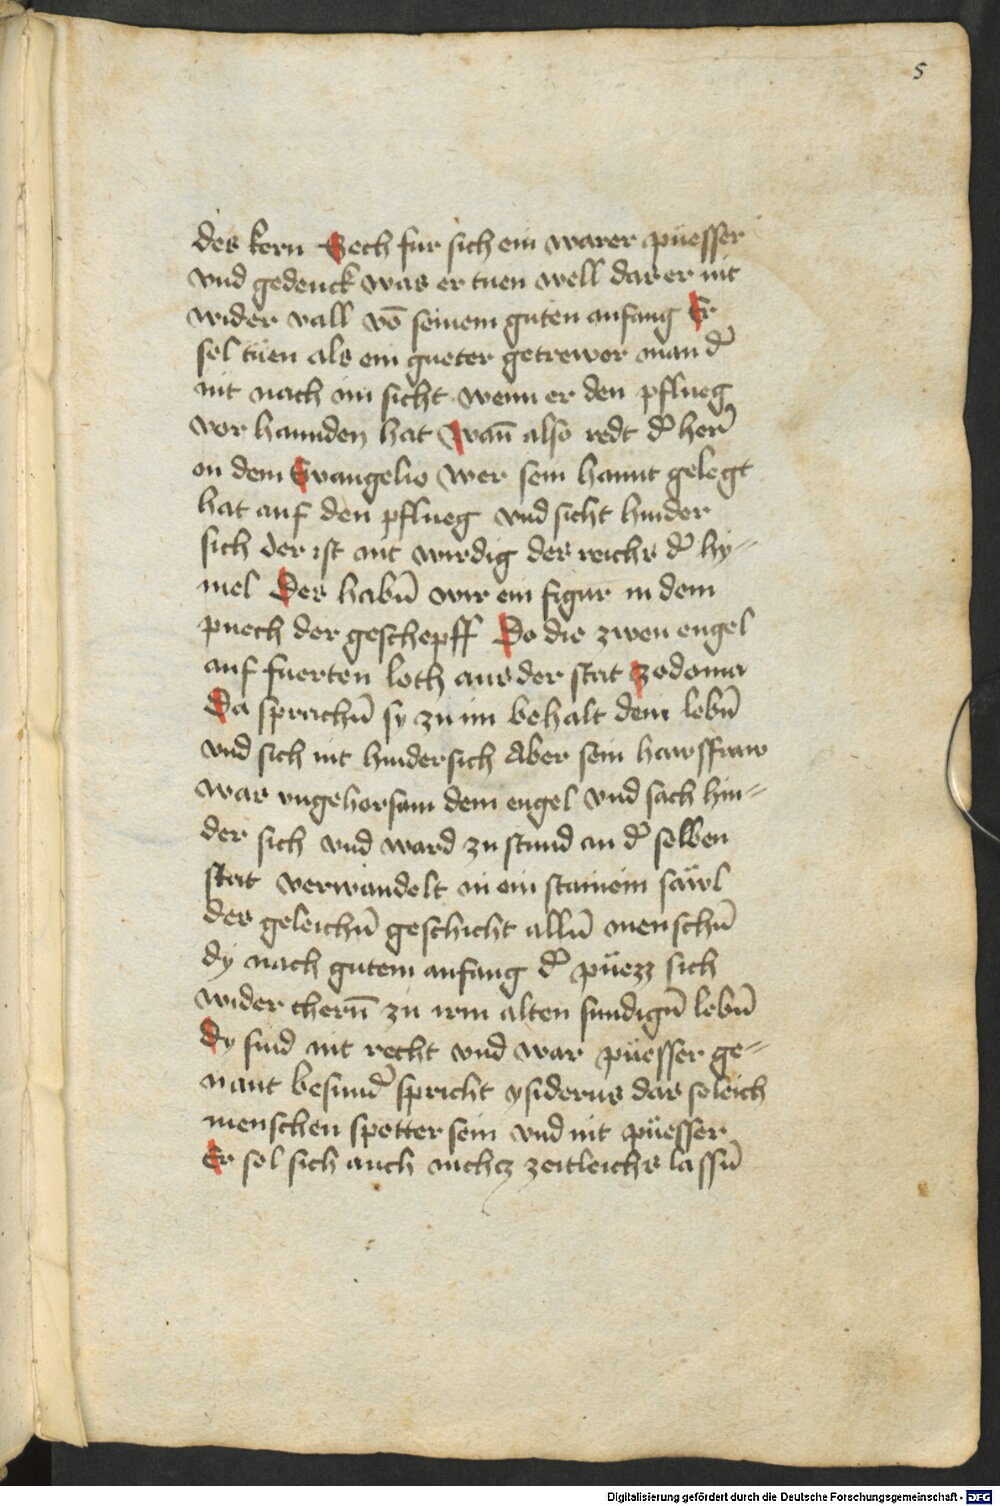 5
des kern Sech fur sich ein warer püesser
vnd gedenck was er tuen well das er nit
wider vall vō seinem guten anfang Er
sol tuen als ein gueter getrewer man d̄
nit nach im sicht wenn er den pflueg
vor hannden hat Wan̄ also redt d̄ her̄
in dem Evangelio Wer sein hannt gelegt
hat auf den pflueg vnd sicht hinder
sich der ist nit wirdig des reichs d̄ hy=
mel Des habn̄ wir ein figur in dem
puech der geschepff Do die zwen engel
auf fuerten loth aus der stat zodoma
Da sprachn̄ sy zu im behalt dein lebn̄
vnd sich nit hindersich Aber sein hawsfraw
was vngehorsam dem engel vnd sach hin=
der sich vnd ward zu stund an d̄ selben
stat verwandelt in ein stainein säwl
des geleichn̄ geschicht alln̄ menschn̄
dy nach gutem anfang d̄ püezz sich
wider chern̄ zu irm alten sundign̄ lebn̄
Dy sind nit recht vnd war püesser ge=
nant besund̄ spricht ysiderus das soleich
menschen spotter sein vnd nit püesser
Er sol sich auch nichcz zeitleichs lassn̄
Digitalisierung gefördert durch die Deutsche Forschungsgemeinschaft - DFG